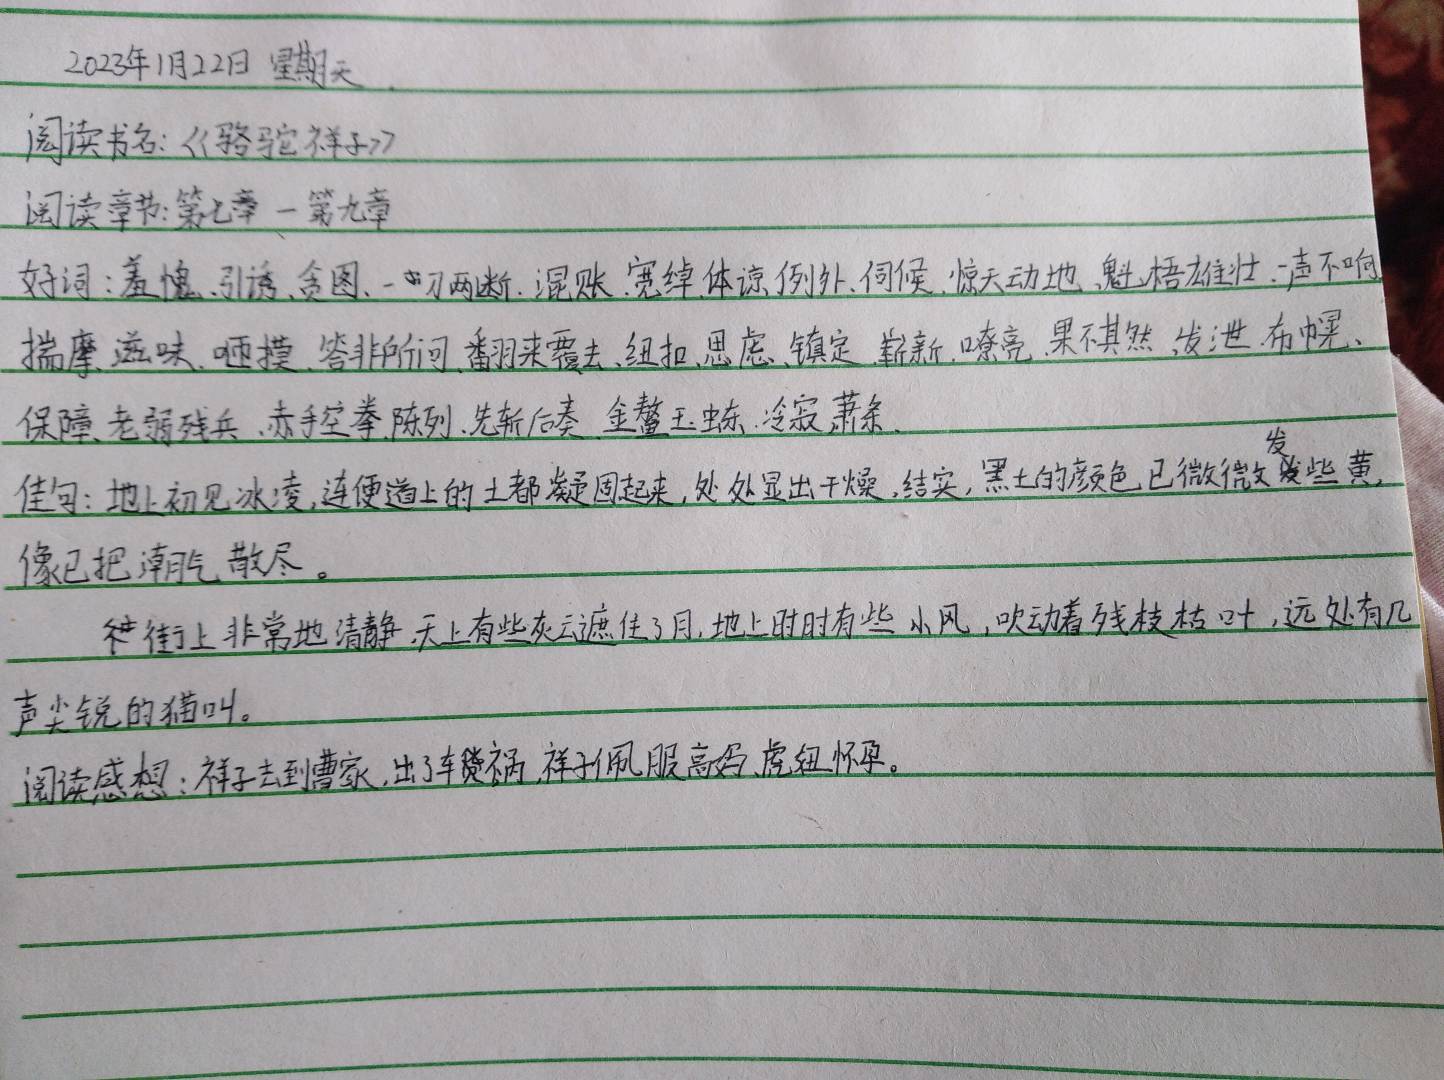 2023年1月22日 星期天
阅读书名:《骆驼祥子》
阅读章节:第七章 — 第九章
好词:羞愧、引诱、贪图、一刀两断、混账、宽绰、体谅、例外、伺候、惊天动地、魁梧雄壮、一声不响
揣摩、滋味、咂摸、答非所问、翻来覆去、纽扣、思虑、镇定、崭新、嘹亮、果不其然、发泄、布幌、
保障、老弱残兵、赤手空拳、陈列、先斩后奏、金鳌玉蝀、冷寂、萧条、
佳句:地上初见冰凌,连便道上的土都凝固起来,处处显出干燥,结实,黑土的颜色已微微发些黄,
像已把潮气散尽。
街上非常地清静,天上有些灰云遮住了月,地上时时有些小风,吹动着残枝枯叶,远处有几
声尖锐的猫叫。
阅读感想:祥子去到曹家,出了车祸,祥子佩服高妈、虎妞怀孕。